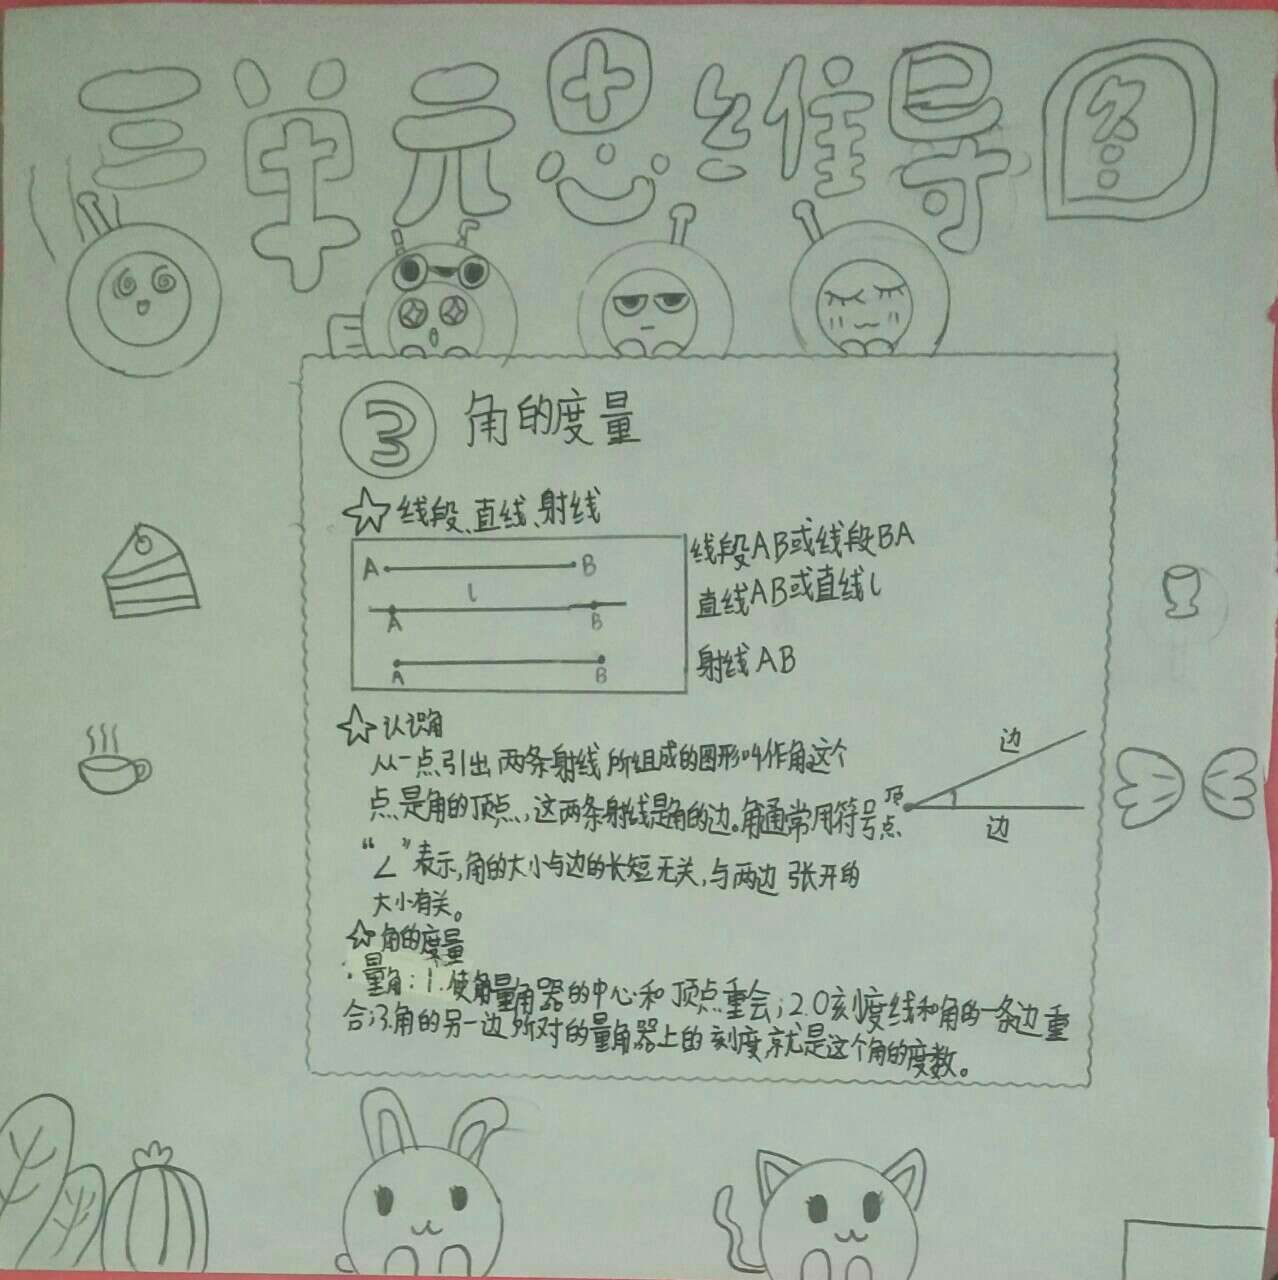 三单元思维导图
3 角的度量
线段、直线、射线
A B
l
A B
A B
线段AB或线段BA
直线AB或直线l
射线AB
认识角
从一点引出两条射线所组成的图形叫作角这个
点是角的顶点,这两条射线是角的边。角通常用符号
“∠”表示,角的大小与边的长短无关,与两边张开的
大小有关。
边
顶点
边
角的度量
量角:1.使量角器的中心和顶点重合;2.0刻度线和角的一条边重
合;3.角的另一边所对的量角器上的刻度,就是这个角的度数。